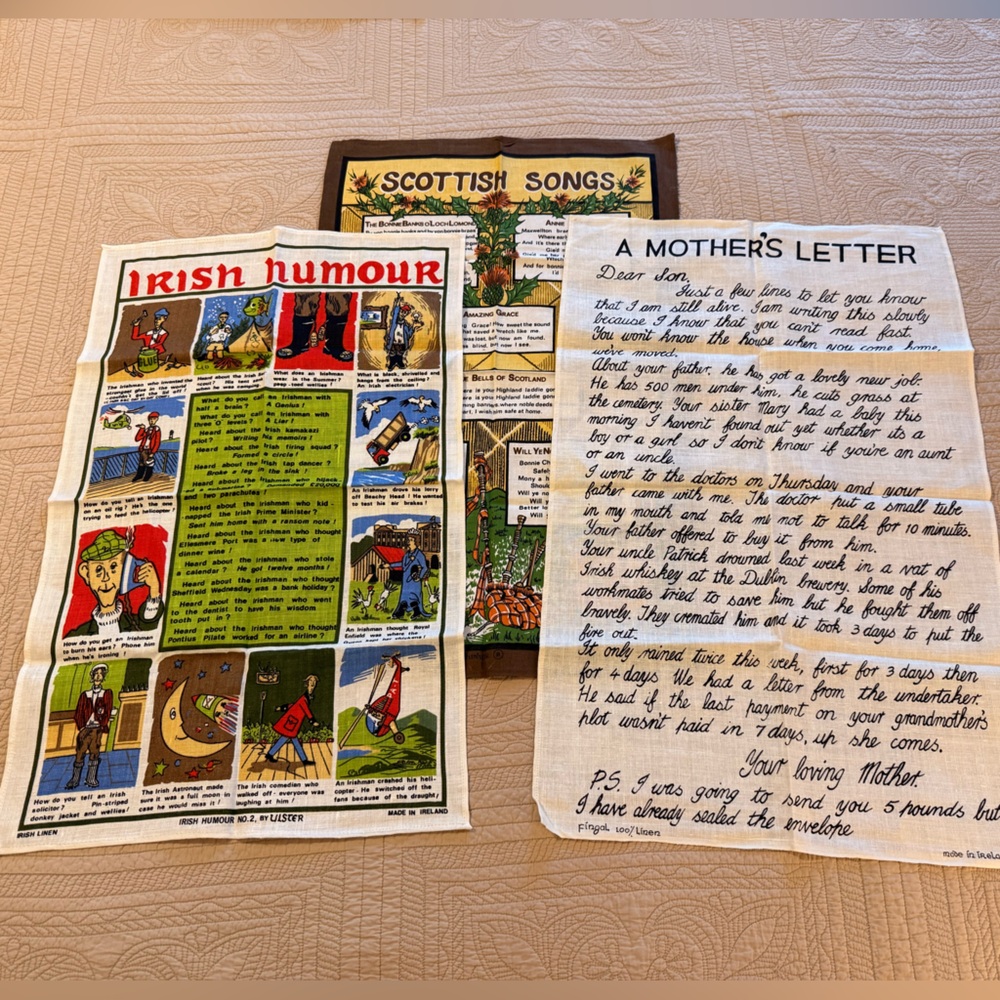 SCOTTISH SONGS
THE BONNIE BANKS O LOCH LOMOND
ANNIE
Maxwellton
Where early
And it's there
Gied
And for bonnie
AMAZING GRACE
Grace! How sweet the sound
that saved a wretch like me
was lost, but now am found,
was blind, but now I see.
BELLS OF SCOTLAND
is your Highland laddie gone
is your Highland laddie gone
where noble deeds
safe at home.
WILL YE NO
Bonnie Ch
Safely
Mony a h
Should
Will ye no
Better lo
Will
IRISH HUMOUR
The Irishman who invented the
What does an Irishman
wear in the Summer?
Open-toed wellies!
What is blue, shrivelled and
hangs from the ceiling?
An Irish electrician!
How do you tell an Irishman
on an oil rig? He's the one
trying to feed the helicopters
What do you call an Irishman with
half a brain? A Genius!
What do you call an Irishman with
three 'O' levels? A Liar!
Heard about the Irish kamakazi
pilot? Writing his memoirs!
Heard about the Irish firing squad?
Formed a circle!
Heard about the Irish tap dancer?
Broke a leg in the sink!
Heard about the Irishman who hijack
ed a submarine? demanded £20,000
and two parachutes!
Heard about the Irishman who kid-
napped the Irish Prime Minister?
Sent him home with a ransom note!
Heard about the Irishman who thought
Ellesmere Port was a new type of
dinner wine!
Heard about the Irishman who stole
a calendar? He got twelve months!
Heard about the Irishman who thought
Sheffield Wednesday was a bank holiday?
Heard about the Irishman who went
to the dentist to have his wisdom
tooth put in?
Heard about the Irishman who thought
Pontius Pilate worked for an airline?
An Irishman drove his lorry
off Beachy Head! He wanted
to test his air brakes!
How do you get an Irishman
to burn his ears? Phone him
when he's ironing!
An Irishman thought Royal
Enfield was where the
Queen kept her chickens!
How do you tell an Irish
solicitor? Pin-striped
donkey jacket and wellies!
The Irish Astronaut made
sure it was a full moon in
case he would miss it!
The Irish comedian who
walked off - everyone was
laughing at him!
An Irishman crashed his heli-
copter. He switched off the
fans because of the draught!
IRISH LINEN
IRISH HUMOUR NO.2, BY ULSTER
MADE IN IRELAND
A MOTHER'S LETTER
Dear Son,
Just a few lines to let you know
that I am still alive. I am writing this slowly
because I know that you can't read fast.
You won't know the house when you come home,
we've moved.
About your father, he has got a lovely new job.
He has 500 men under him, he cuts grass at
the cemetery. Your sister Mary had a baby this
morning I haven't found out yet whether its a
boy or a girl so I don't know if you're an aunt
or an uncle.
I went to the doctors on Thursday and your
father came with me. The doctor put a small tube
in my mouth and told me not to talk for 10 minutes.
Your father offered to buy it from him.
Your uncle Patrick drowned last week in a vat of
Irish whiskey at the Dublin brewery. Some of his
workmates tried to save him but he fought them off
bravely. They cremated him and it took 3 days to put the
fire out.
It only rained twice this week, first for 3 days then
for 4 days We had a letter from the undertaker.
He said if the last payment on your grandmother's
plot wasn't paid in 7 days, up she comes.
Your loving Mother.
P.S. I was going to send you 5 pounds but
I have already sealed the envelope
Fingal 100% Linen
made in Irela